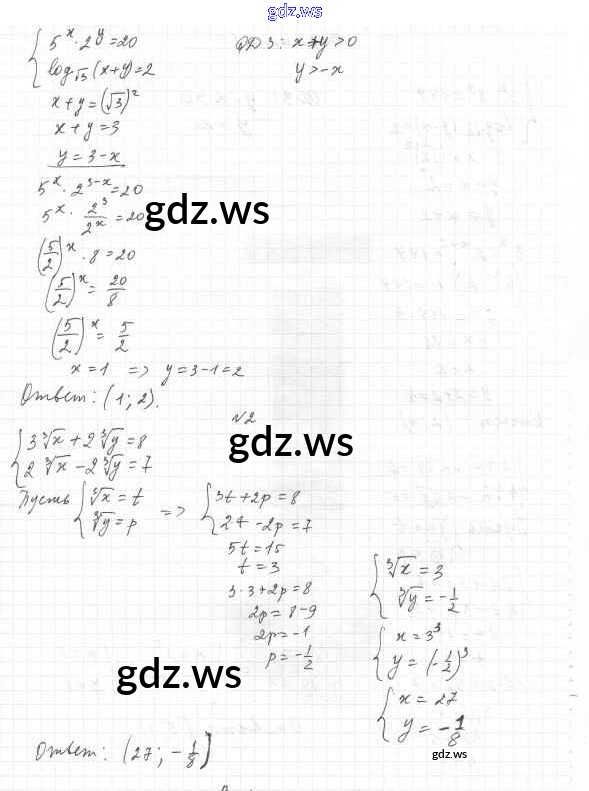 gdz.ws
{ 5^x · 2^y = 20
log_√3 (x+y) = 2
ОДЗ: x+y > 0
y > -x
x + y = (√3)^2
x + y = 3
y = 3 - x
5^x · 2^(3-x) = 20
5^x · 2^3/2^x = 20
gdz.ws
(5/2)^x · 8 = 20
(5/2)^x = 20/8
(5/2)^x = 5/2
x = 1 => y = 3-1 = 2
Ответ: (1; 2).
№2
{ 3∛x + 2∛y = 8
2∛x - 2∛y = 7
gdz.ws
Пусть { ∛x = t
∛y = p
=> { 3t + 2p = 8
2t - 2p = 7
5t = 15
t = 3
3·3 + 2p = 8
2p = 8 - 9
2p = -1
p = -1/2
{ ∛x = 3
∛y = -1/2
{ x = 3^3
y = (-1/2)^3
{ x = 27
y = -1/8
gdz.ws
Ответ: (27; -1/8)
gdz.ws